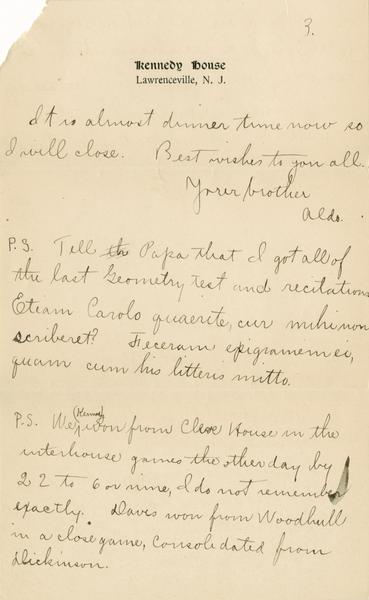 3.
Kennedy House
Lawrenceville, N. J.
It is almost dinner time now so
I will close. Best wishes to you all.
Your brother
Aldo.
P.S. Tell th Papa that I got all of
the last Geometry test and recitations
Etiam Carolo quaerite, cur mihi non
scriberet? Feceram epigramem si,
quam cum his litteris mitto.
P.S. We, (Kennedy) won from Cleve House in the
interhouse games the other day by
22 to 6 or nine, I do not remember
exactly. Davis won from Woodhull
in a close game, Consolidated from
Dickinson.